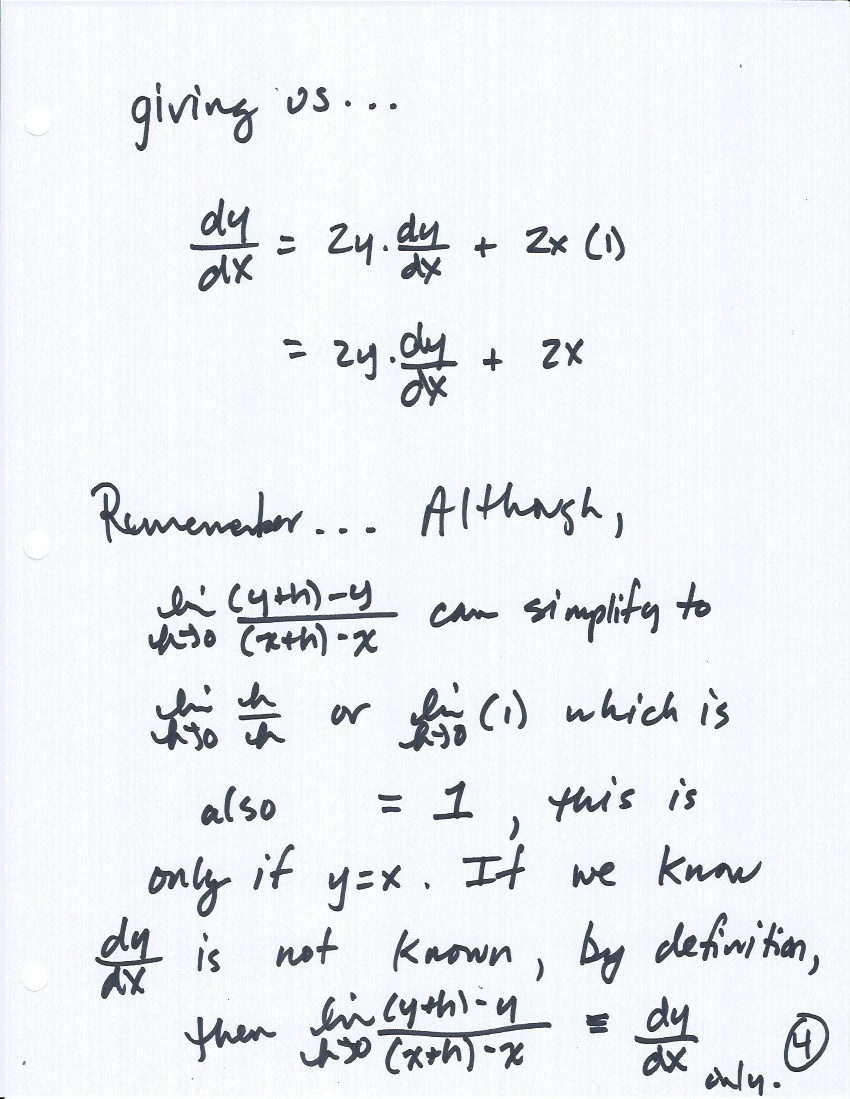 giving us...
dy/dx = 2y · dy/dx + 2x (1)
= 2y · dy/dx + 2x
Rememember... Although,
lim h→0 (y+h)-y / (x+h)-x can simplify to
lim h→0 h/h or lim h→0 (1) which is
also = 1, this is
only if y=x. If we know
dy/dx is not known, by definition,
then lim h→0 (y+h)-y / (x+h)-x ≡ dy/dx only.
4